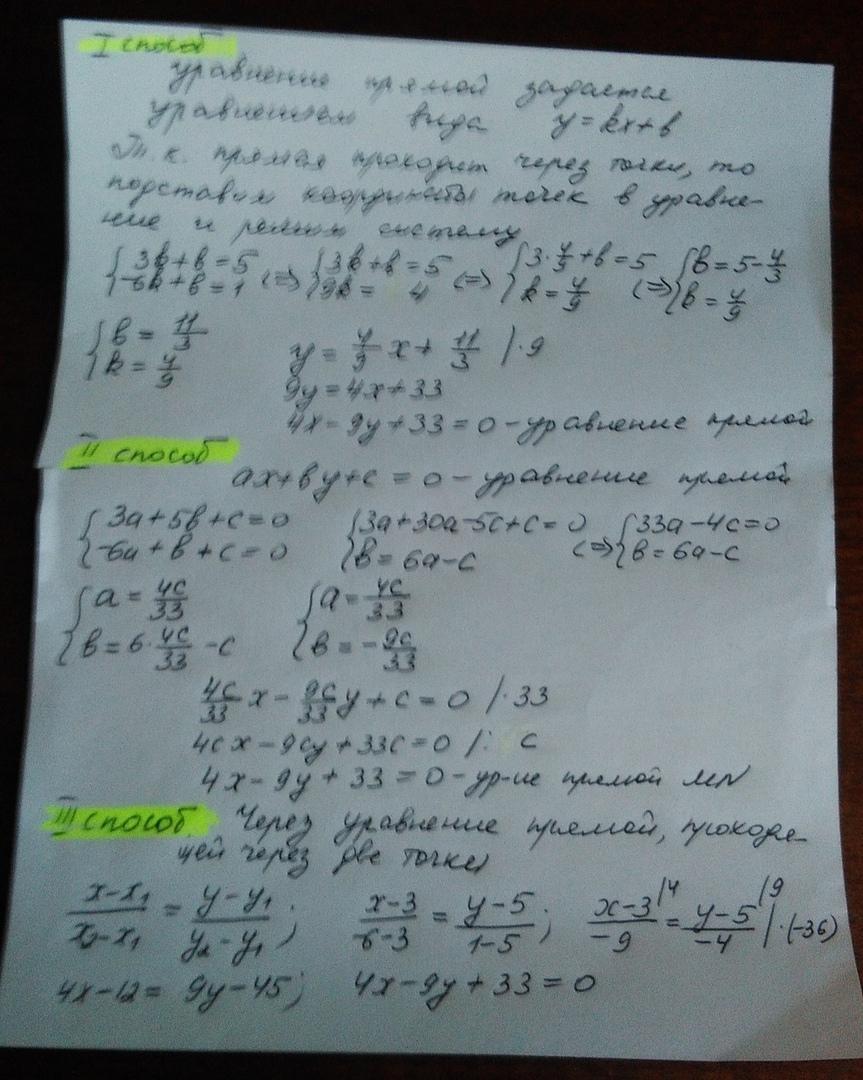 I способ
уравнение прямой задается
уравнением вида y = kx + b
Т.к. прямая проходит через точки, то
подставим координаты точек в уравне-
ние и решим систему
{3k+b=5 {-6k+b=1 <=> {3k+b=5 {9k= 4 <=> {3·4/9+b=5 {k=4/9 <=> {b=5-4/3 {b=4/9
{b=11/3 {k=4/9 y = 4/9 x + 11/3 /·9
9y=4x+33
4x-9y+33=0 - уравнение прямой
II способ
ax+by+c=0 - уравнение прямой
{3a+5b+c=0 {-6a+b+c=0 {3a+30a-5c+c=0 {b=6a-c <=> {33a-4c=0 {b=6a-c
{a=4c/33 {b=6·4c/33-c {a=4c/33 {b=-9c/33
4c/33 x - 9c/33 y + c = 0 /·33
4cx-9cy+33c=0 /: c
4x-9y+33=0 - ур-ие прямой MN
III способ. Через уравнение прямой, проходя-
щей через две точки
x-x₁/x₂-x₁ = y-y₁/y₂-y₁; x-3/-6-3 = y-5/1-5; x-3/-9 /4 = y-5/-4 /9 |·(-36)
4x-12=9y-45; 4x-9y+33=0